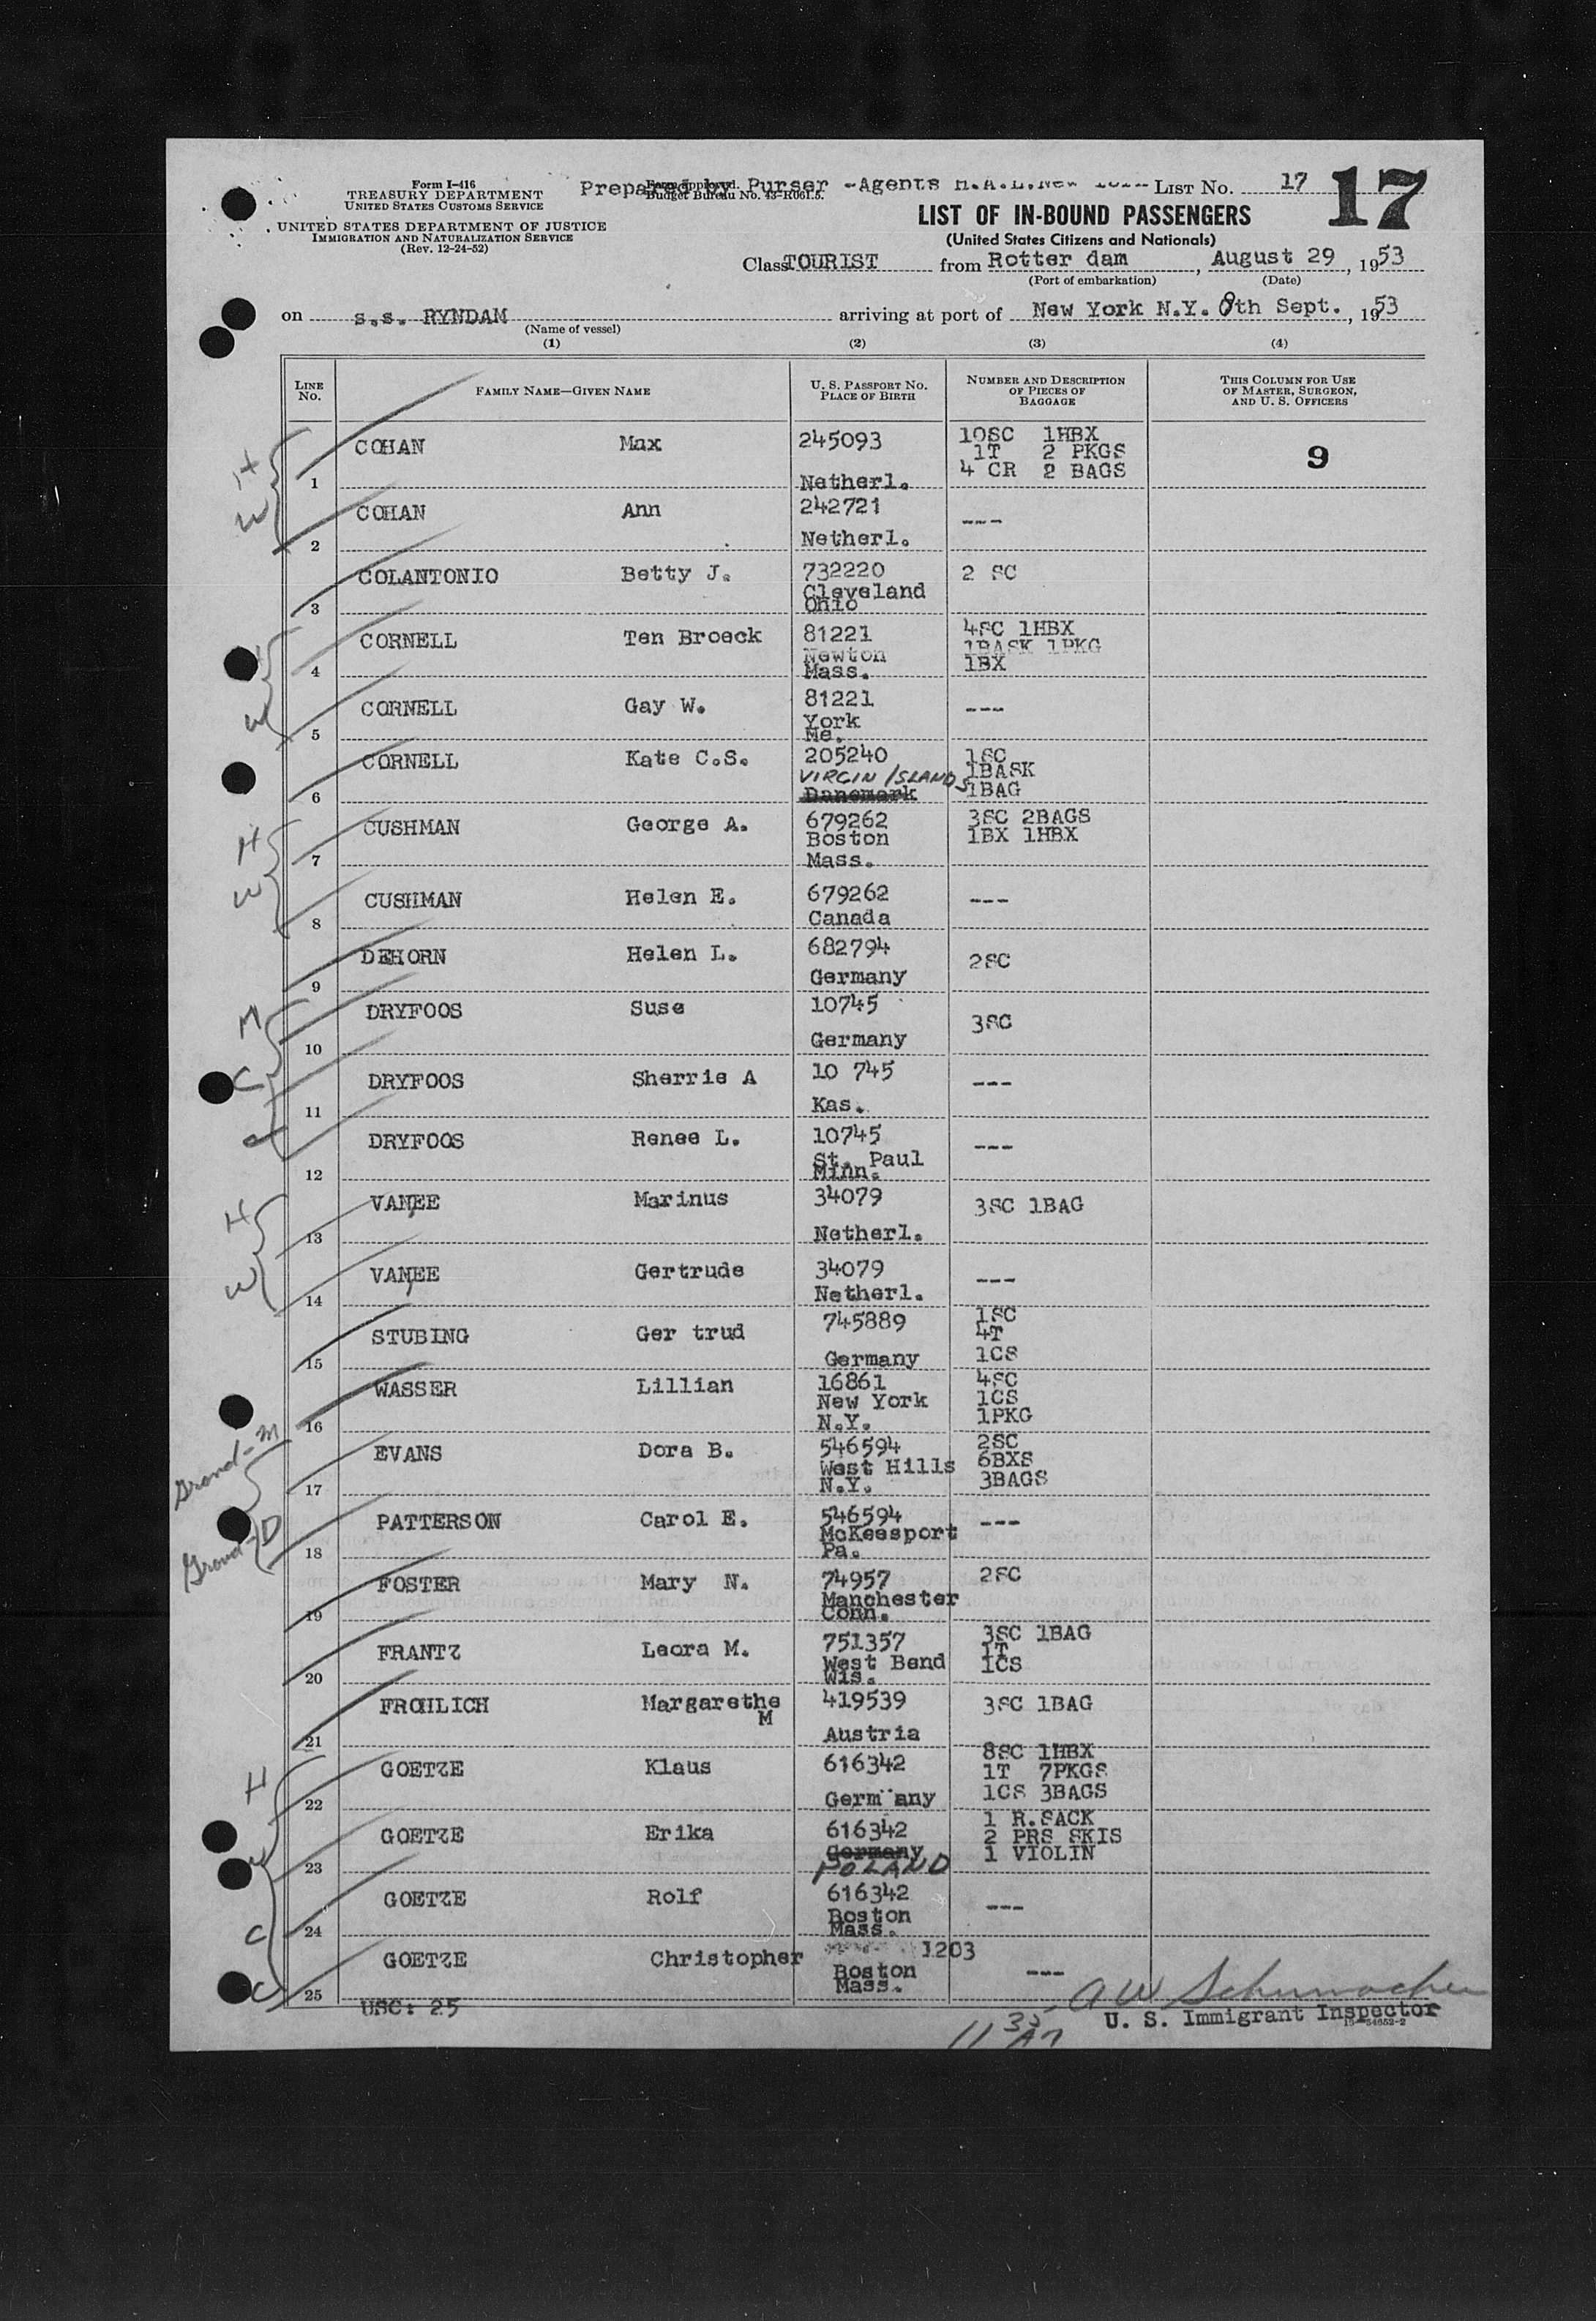 Form I-416
TREASURY DEPARTMENT
UNITED STATES CUSTOMS SERVICE
UNITED STATES DEPARTMENT OF JUSTICE
IMMIGRATION AND NATURALIZATION SERVICE
(Rev. 12-24-52)
Prepared by Purser -Agents H.A.L. New
Form approved.
Budget Bureau No. 43-R061.5.
LIST No. 17
17
LIST OF IN-BOUND PASSENGERS
(United States Citizens and Nationals)
Class TOURIST from Rotter dam, August 29, 1953
(Port of embarkation) (Date)
on s.s. RYNDAM arriving at port of New York N.Y. 8th Sept., 1953
(Name of vessel)
(1) (2) (3) (4)
LINE No. FAMILY NAME—GIVEN NAME U. S. PASSPORT No. PLACE OF BIRTH NUMBER AND DESCRIPTION OF PIECES OF BAGGAGE THIS COLUMN FOR USE OF MASTER, SURGEON, AND U. S. OFFICERS
H 1 COHAN Max 245093 Netherl. 10SC 1HBX 1T 2 PKGS 4 CR 2 BAGS 9
W 2 COHAN Ann 242721 Netherl. ---
3 COLANTONIO Betty J. 732220 Cleveland Ohio 2 SC
4 CORNELL Ten Broeck 81221 Newton Mass. 4SC 1HBX 1BASK 1PKG 1BX
W 5 CORNELL Gay W. 81221 York Me. ---
6 CORNELL Kate C.S. 205240 VIRGIN ISLANDS Danemark 1SC 1BASK 1BAG
H 7 CUSHMAN George A. 679262 Boston Mass. 3SC 2BAGS 1BX 1HBX
W 8 CUSHMAN Helen E. 679262 Canada ---
9 DEHORN Helen L. 682794 Germany 2SC
M 10 DRYFOOS Suse 10745 Germany 3SC
C 11 DRYFOOS Sherrie A 10 745 Kas. ---
12 DRYFOOS Renee L. 10745 St. Paul Minn. ---
H 13 VANEE Marinus 34079 Netherl. 3SC 1BAG
W 14 VANEE Gertrude 34079 Netherl. ---
15 STUBING Ger trud 745889 Germany 1SC 4T 1CS
16 WASSER Lillian 16861 New York N.Y. 4SC 1CS 1PKG
Grand-M 17 EVANS Dora B. 546594 West Hills N.Y. 2SC 6BXS 3BAGS
Grand-D 18 PATTERSON Carol E. 546594 McKeesport Pa. ---
19 FOSTER Mary N. 74957 Manchester Conn. 2SC
20 FRANTZ Leora M. 751357 West Bend Wis. 3SC 1BAG 1T 1CS
21 FROHLICH Margarethe M 419539 Austria 3SC 1BAG
H 22 GOETZE Klaus 616342 Germ any 8SC 1HBX 1T 7PKGS 1CS 3BAGS
W 23 GOETZE Erika 616342 Germany POLAND 1 R.SACK 2 PRS SKIS 1 VIOLIN
C 24 GOETZE Rolf 616342 Boston Mass. ---
C 25 GOETZE Christopher 1203 Boston Mass. ---
USC: 25
A W Schumacher
U. S. Immigrant Inspector
11 35